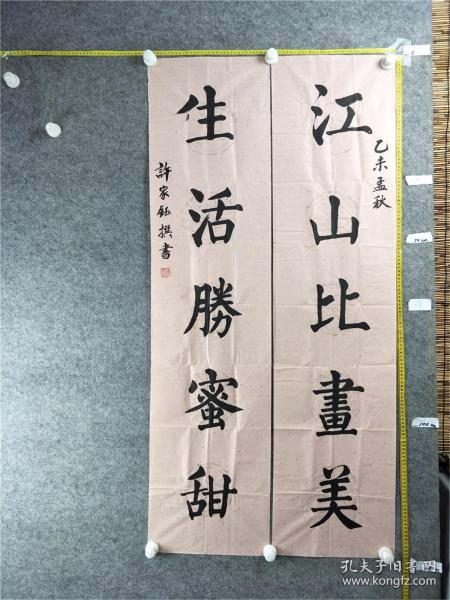 乙未孟秋
江山比畫美
生活勝蜜甜
許家鈺撰書
孔夫子旧书网
www.kongfz.com